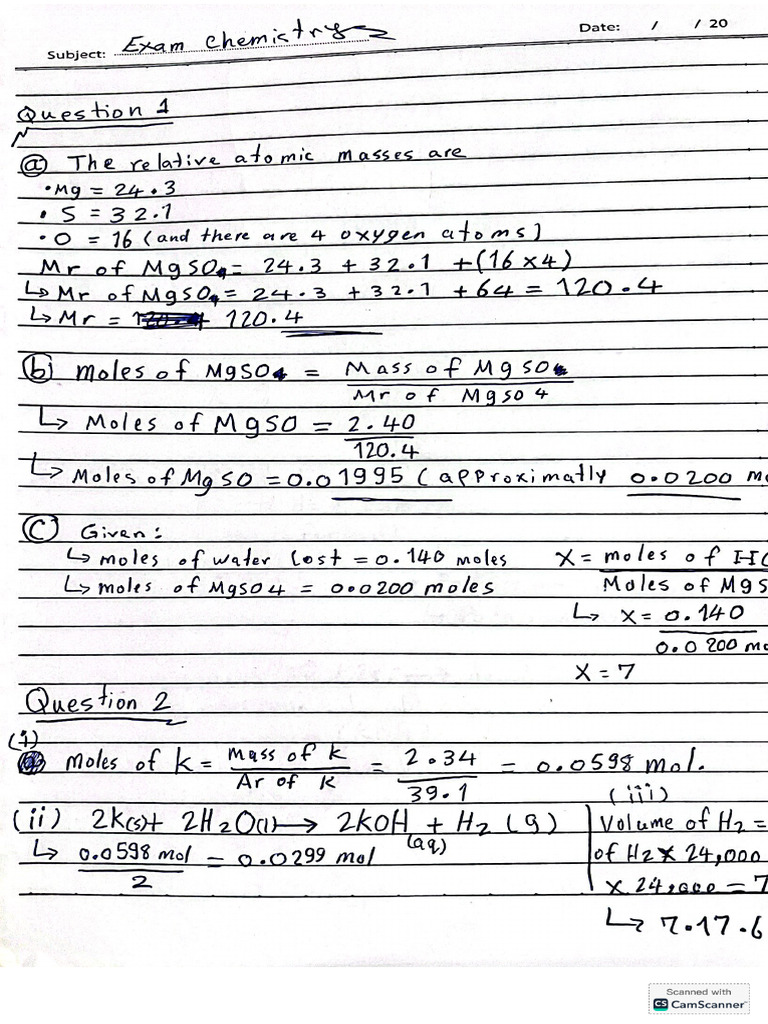 Subject: Exam chemistry
Date: / / 20
Question 1
ⓐ The relative atomic masses are
• Mg = 24.3
• S = 32.1
• O = 16 (and there are 4 oxygen atoms)
Mr of MgSO4 = 24.3 + 32.1 + (16 x 4)
↳ Mr of MgSO4 = 24.3 + 32.1 + 64 = 120.4
↳ Mr = 120.4
ⓑ moles of MgSO4 = Mass of MgSO4
Mr of MgSO4
↳ Moles of MgSO = 2.40
120.4
↳ Moles of MgSO = 0.01995 (approximatly 0.0200
ⓒ Given:
↳ moles of water Lost = 0.140 moles
↳ moles of MgSO4 = 0.0200 moles
X = moles of
Moles of
↳ X = 0.140
0.0200
X = 7
Question 2
(i)
moles of K = mass of K = 2.34 = 0.0598 mol.
Ar of K 39.1
(ii) 2K(s)+ 2H2O(l) → 2KOH(aq) + H2 (g)
↳ 0.0598 mol = 0.0299 mol
2
(iii)
Volume of H2 =
of H2 x 24,000
x 24,000 = 7
↳ 7.17.6
Scanned with
CS CamScanner